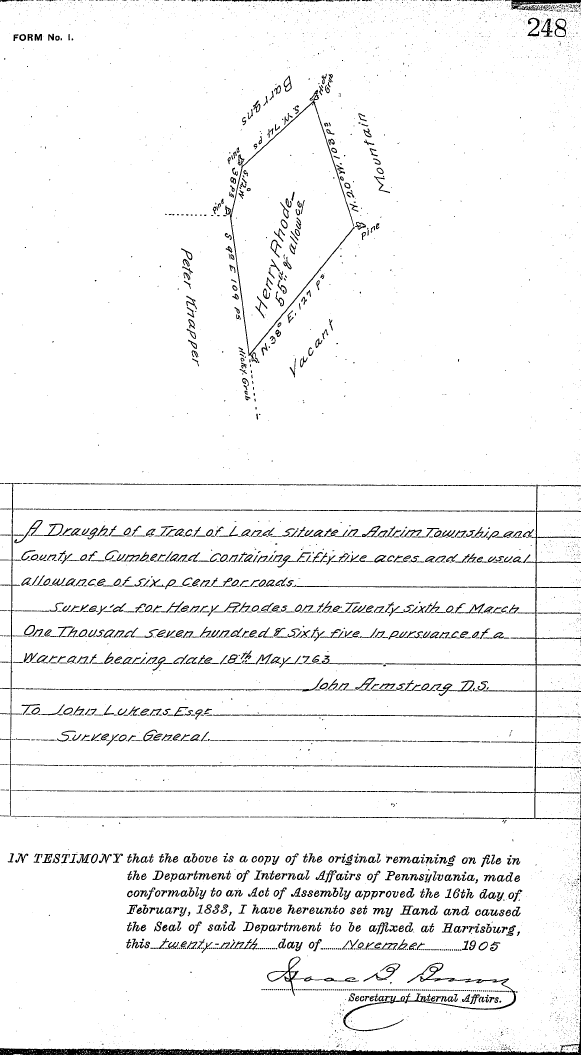 248
FORM No. 1.
Barrens
Grub
S. W. 74 ps
Mountain
N. 20° W. 102 ps
Pine
S. 12 W
38 ps
Pine
Pine
Henry Rhode
55 a & allowce
S 9 E 109 ps
Peter Knapper
N. 38° E. 127 ps
Vacant
Hicky. Grub
A Draught of a Tract of Land situate in Antrim Township and
County of Cumberland containing Fifty five acres and the usual
allowance of six p Cent for roads.
Survey'd for Henry Rhodes on the Twenty sixth of March
One Thousand seven hundred & Sixty five In pursuance of a
Warrant bearing date 18th May 1763
John Armstrong D.S.
To John Lukens Esqr
Surveyor General.
IN TESTIMONY that the above is a copy of the original remaining on file in
the Department of Internal Affairs of Pennsylvania, made
conformably to an Act of Assembly approved the 16th day of
February, 1833, I have hereunto set my Hand and caused
the Seal of said Department to be affixed at Harrisburg,
this twenty-ninth day of November 1905
Isaac B. Brown
Secretary of Internal Affairs.